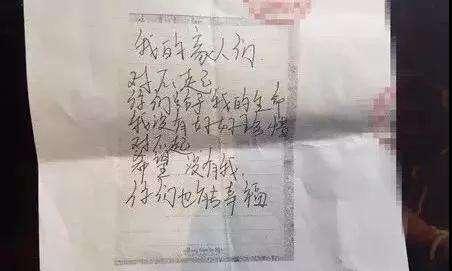 我的家人们
对不起
你们给予我的生命
我没有好好珍惜
对不起
希望没有我.
你们也能幸福